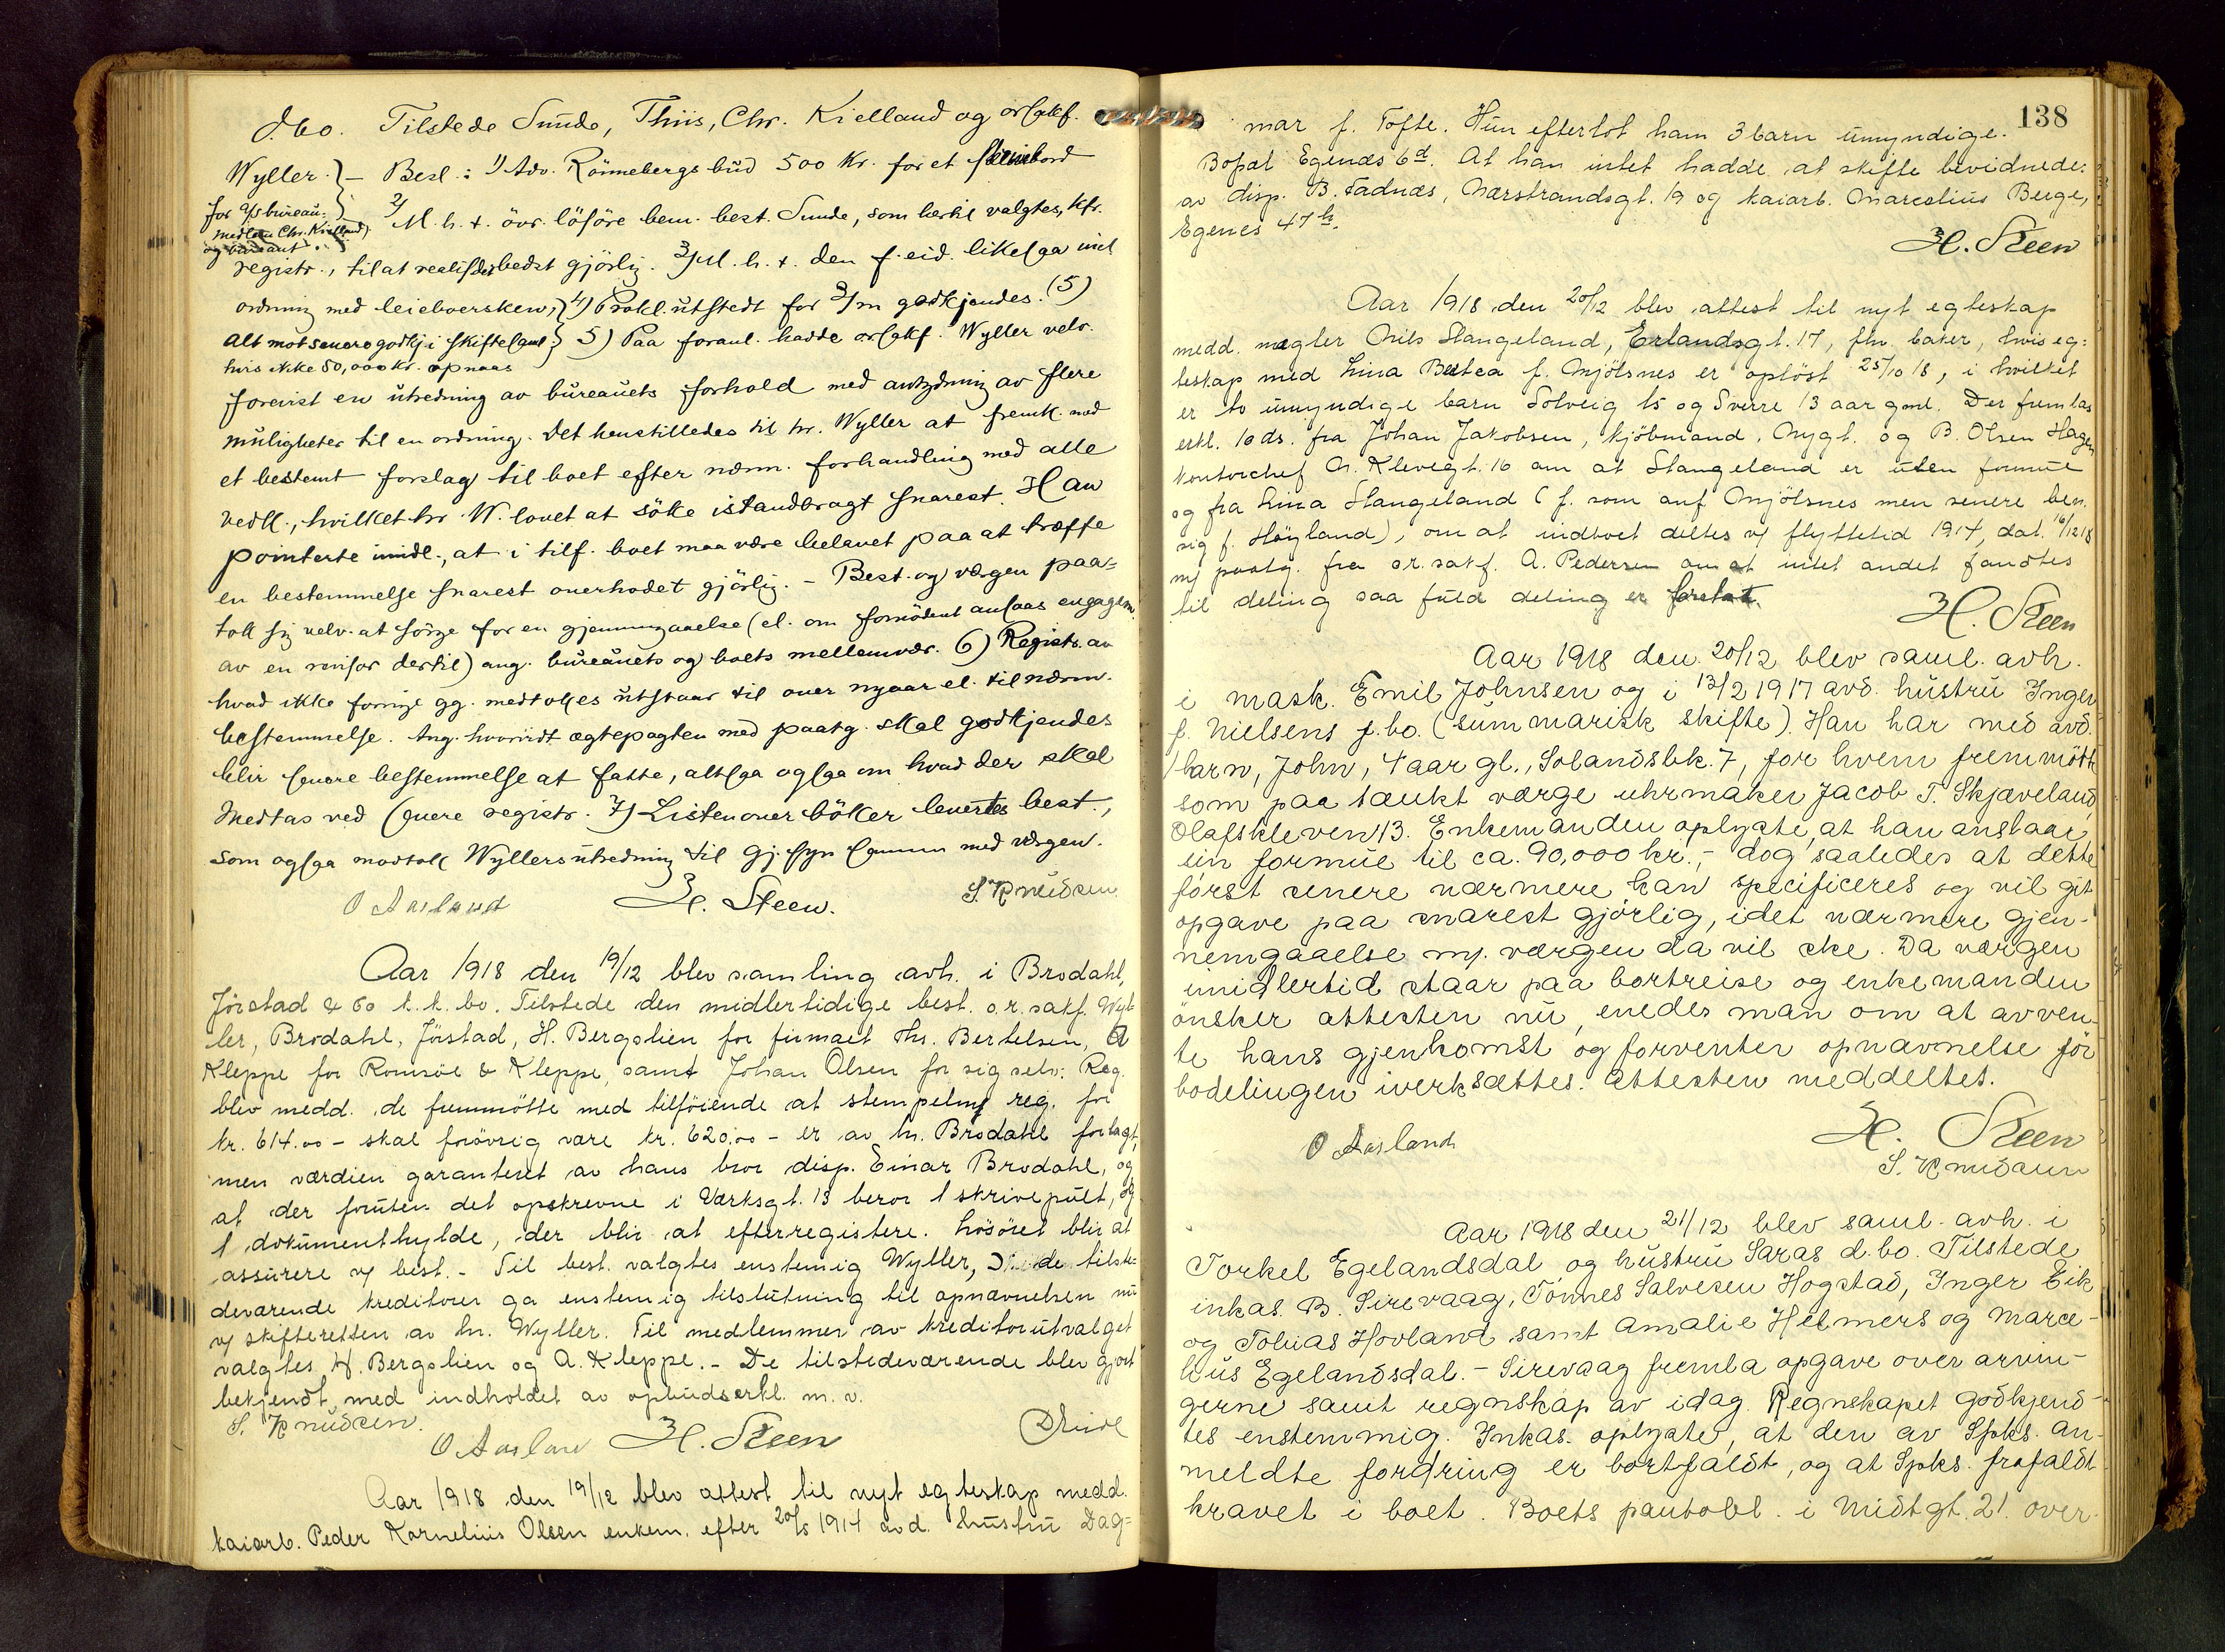 d.bo. Tilstede Sunde, Thiis, Chr. Kielland og orsakf.
Wyller. } — Besl.: 1) Adv. Rönnebergs bud 500 Kr. for et skrivebord
for a/s bureau: } 2) M. h. t. övr. lösöre bem. best. Sunde, som hertil valgtes, kfr.
medlem Chr. Kielland)
registr., til at realiseres bedst gjörlig. 3) M. h. t. den f. eid. likesaa ind
ordning med leieboersken, } 4) Prokl. utstedt for 3/m godkjendes. (5)
Alt mot senere godkj. i skiftesaml. } 5) Paa foranl. hadde orsakf. Wyller velv.
hvis ikke 50,000 kr. opnaas
forevist en utredning av bureauets forhold med antydning av flere
muligheter til en ordning. Det henstilledes til hr. Wyller at fremk. med
et bestemt forslag til boet efter nærm. forhandling med alle
vedk., hvilket hr. W. lovet at söke istandbragt snarest. Han
pointerte imidl., at i tilf. boet maa være belavet paa at træffe
en bestemmelse snarest overhodet gjörlig. – Best. og vergen paa=
tok sig velv. at sörge for en gjennemgaaelse (el. om fornödent ansaas engagem.
av en revisor dertil) ang. bureauets og boets mellemvær. 6) Registr. av
hvad ikke forrige gg. medtokes utstaar til over nyaar el. til nærm.
bestemmelse. Ang. hvorvidt ægtepagten med paatg. skal godkjendes
blir senere bestemmelse at fatte, altsaa ogsaa om hvad der skal
medtas ved senere registr. 7) Listen over böker levertes best.,
som ogsaa modtok Wyllers utredning til gj.syn sammen med vergen.
O Aasland H. Steen. S. Knudsen.
Aar 1918 den 19/12 blev samling avh. i Brodahl,
Jörstad & Co k.k. bo. Tilstede den midlertidige best. o.r.sakf. Wyl-
ler, Brodahl, Jörstad, H. Bergslien for firmaet Ths. Bertelsen, A
Kleppe for Romsöe & Kleppe, samt Johan Olsen for sig selv. Reg.
blev medd. de fremmötte med tilföiende at stempelm. reg. for
kr. 614.00 – skal forövrig være kr. 620.00 – er av hr. Brodahl forlagt,
men værdien garanteret av hans bror disp. Einar Brodahl, og
at der foruten det opskrevne i Værksgt. 13 beror 1 skrivepult, og
1 dokumenthylde, der blir at efterregistere. Lösöret blir at
assurere v/ best. – Til best. valgtes enstemig Wyller, tilste=
deværende kreditorer ga enstemig tilslutning til opnævnelsen nu
v/ skifteretten av hr. Wyller. Til medlemmer av kreditorutvalget
valgtes H. Bergslien og A. Kleppe. – De tilstedeværende blev gjort
bekjendt med indholdet av opbudserkl. m. v.
S. Knudsen.
O Aasland H. Steen
Aar 1918 den 19/12 blev attest til nyt egteskap medd.
kaiarb. Peder Kornelius Olsen enkem. efter 20/5 1914 avd. hustru Dag=
138
mar f. Tofte. Hun efterlot ham 3 barn umyndige.
Bopæl Egenæs 6d. At han intet hadde at skifte bevidnedes
av disp. B. Fadnæs, Nærstrandsgt. 19 og kaiarb. Marcelius Berge,
Egenes 47 b.
H. Steen
Aar 1918 den 20/12 blev attest til nyt egteskap
medd. mægler Nils Stangeland, Erlandsgt. 17, fhv. baker, hvis eg=
teskap med Lina Beatea f. Mjölsnes er oplöst 25/10 18, i hvilket
er to umyndige barn Solveig 15 og Sverre 13 aar gml. Der fremlas
erkl. 10 ds. fra Johan Jakobsen, kjöbmand, Nygt. og B. Olsen Hagen
kontorchef N. Klevegt. 16 om at Stangeland er uten formue
og fra Lina Stangeland (f. som anf Mjölsnes men senere ben.
sig f. Höyland), om at indboet deltes v/ flyttetid 1917, dat. 16/12 18
m/ paatg. fra o.r.sakf. A. Pedersen om at intet andet fandtes
til deling saa fuld deling er foretat.
H. Steen
Aar 1918 den 20/12 blev saml. avh.
i mask. Emil Johnsen og i 13/2 1917 avd. hustru Inger
f. Nielsens f.bo. (summarisk skifte). Han har med avd.
1 barn, John, 4 aar gl., Solandsbk. 7, for hvem fremmötte
som paatænkt værge uhrmaker Jacob T. Skjæveland,
Olafskleven 13. Enkemanden oplyste, at han anslaar
sin formue til ca. 90,000 kr., – dog saaledes at dette
först senere nærmere kan specificeres og vil git
opgave paa snarest gjörlig, idet nærmere gjen-
nemgaaelse m/ værgen da vil ske. Da værgen
imidlertid staar paa bortreise og enkemanden
önsker attesten nu, enedes man om at avven-
te hans gjenkomst og forventer opnævnelse för
bodelingen iverksættes. Attesten meddeltes.
O Aasland H. Steen
S. Knudsen
Aar 1918 den 21/12 blev saml. avh. i
Torkel Egelandsdal og hustru Saras d.bo. Tilstede
inkas. B. Sirevaag, Tönnes Salvesen Hogstad, Inger Eik
og Tobias Hovland samt Amalie Helmers og Marce-
lius Egelandsdal. – Sirevaag fremla opgave over arvin-
gerne samt regnskap av idag. Regnskapet godkjend-
tes enstemmig. Inkas. oplyste, at den av Spks. an-
meldte fordring er bortfaldt, og at Spks. frafaldt
kravet i boet. Boets pantobl. i Midtgt. 21. over-